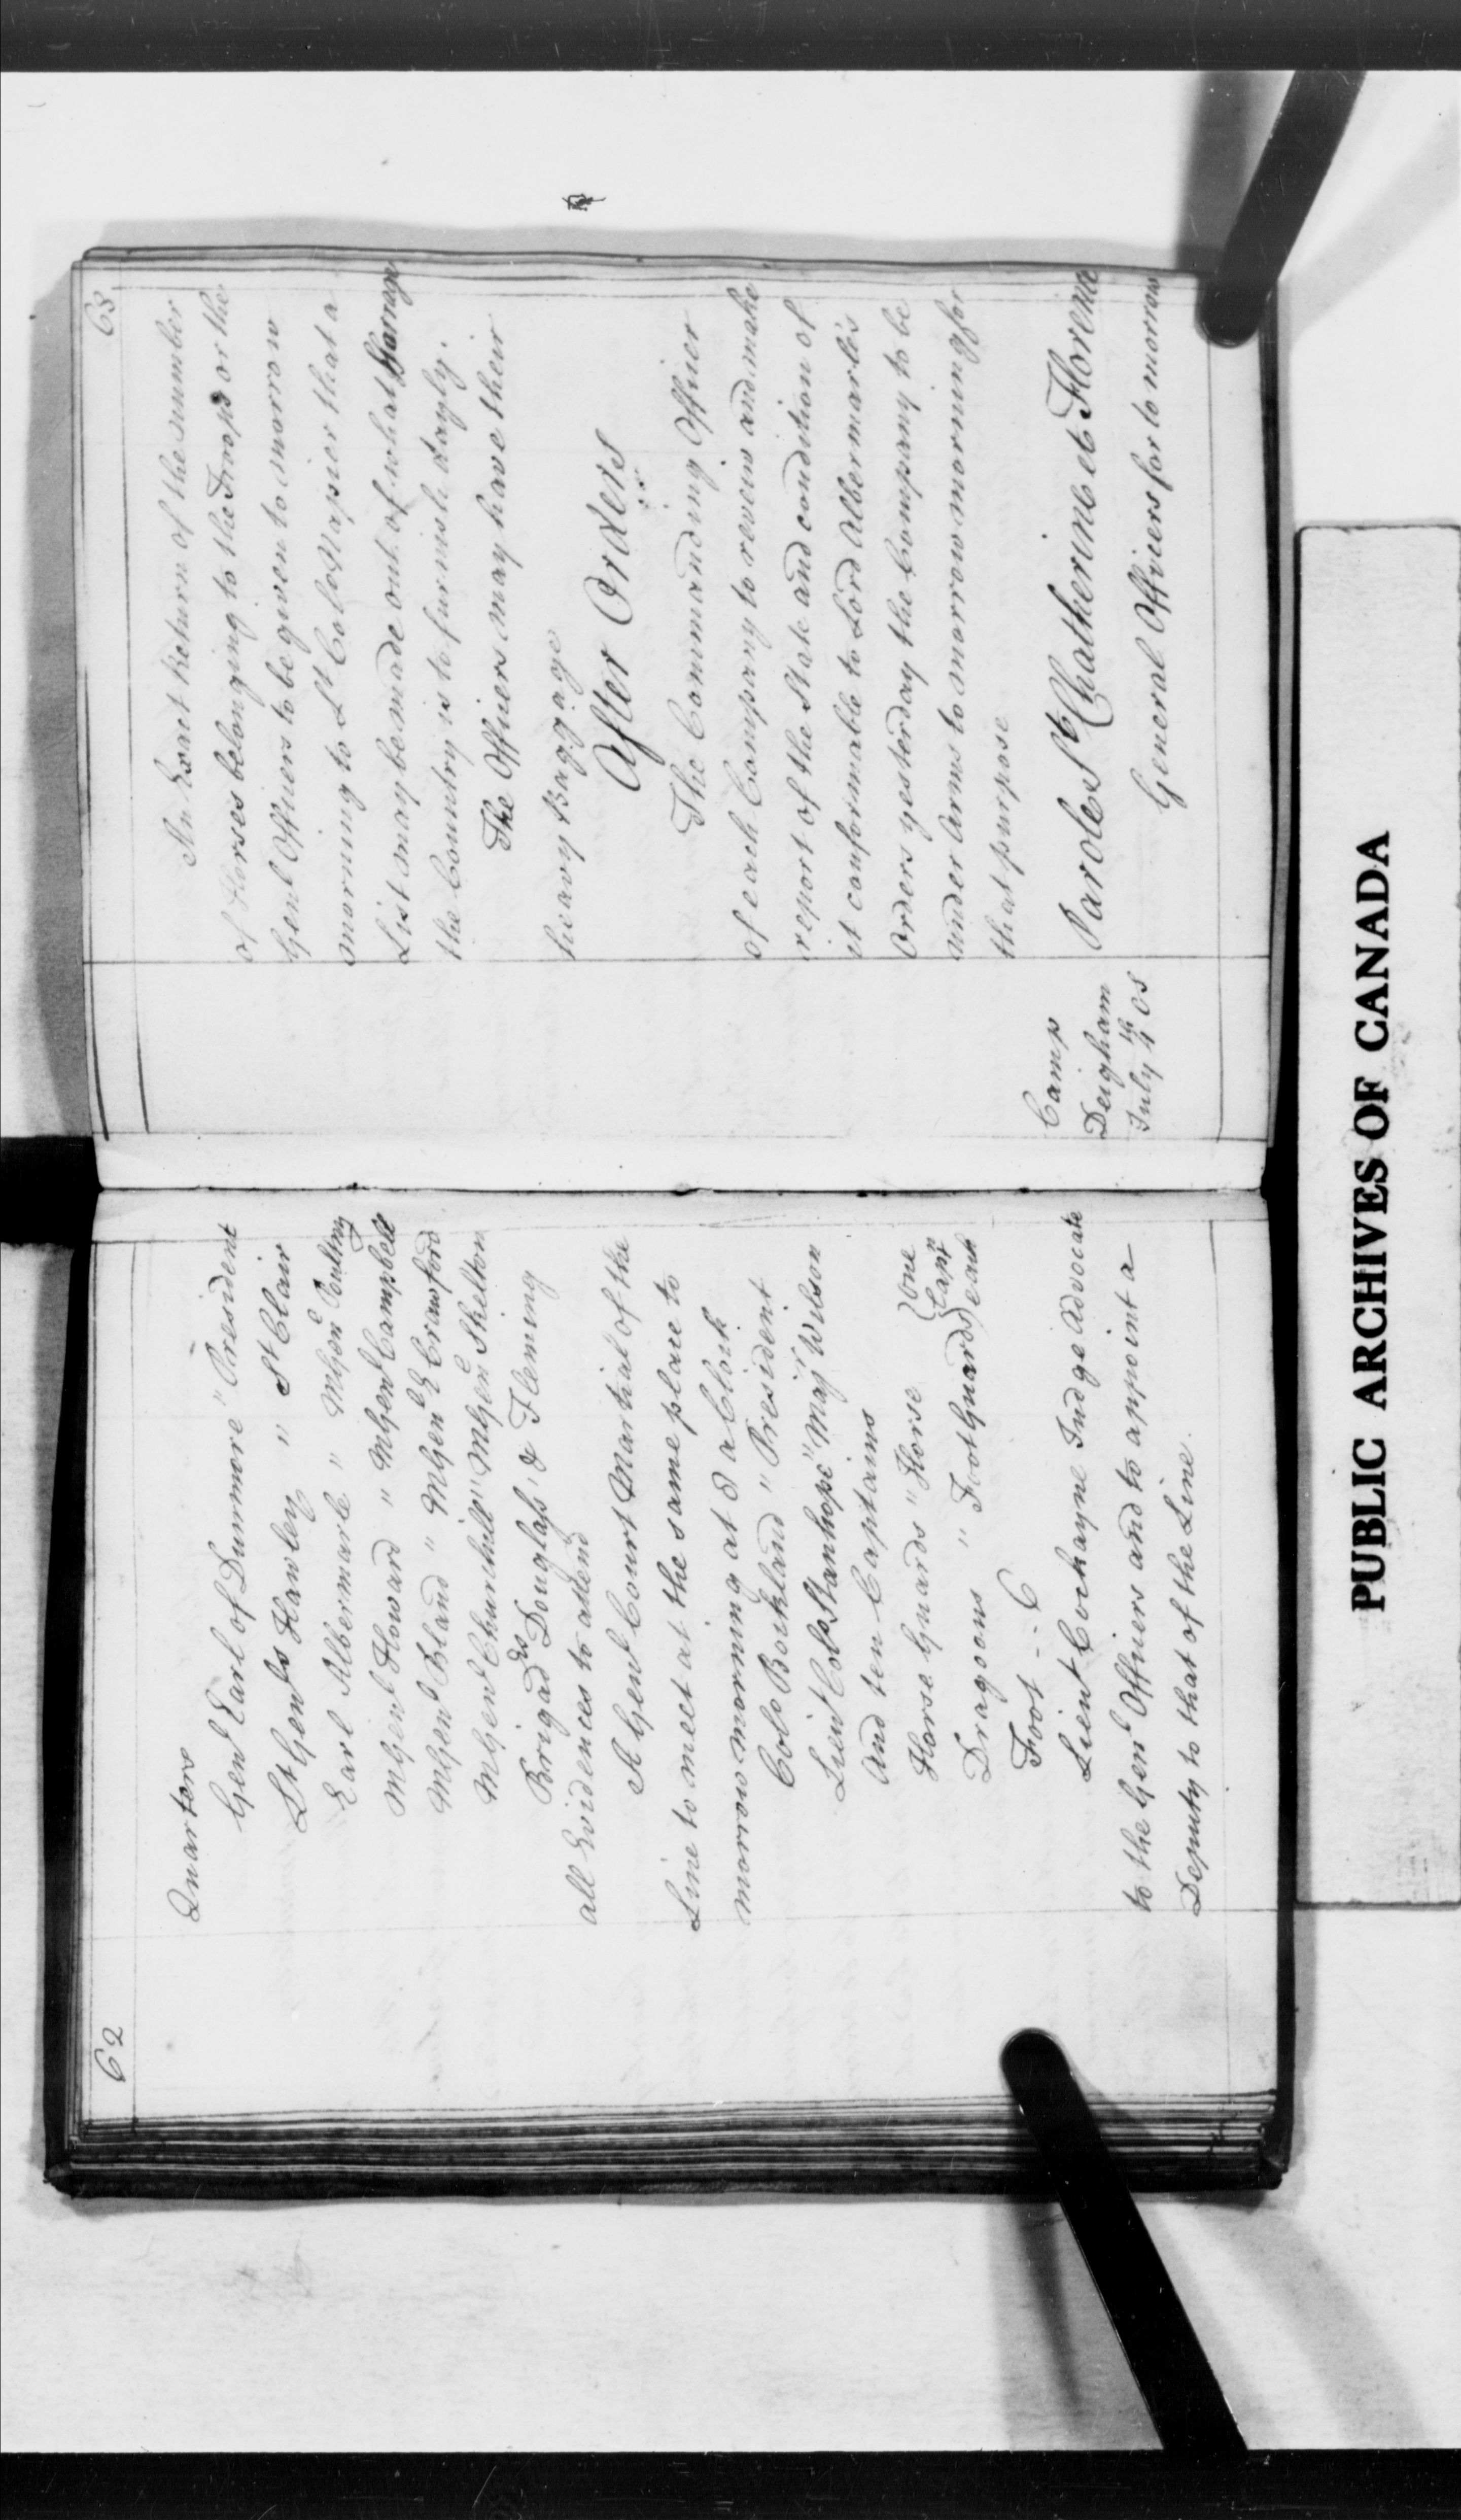 62
Quarters
Genl Earl of Dunmore " President
Lt Genls Hawley " St Clair
Earl Albermarle " MGenl Poultny
MGenl Howard " MGenl Campbell
MGenl Bland " MGenl E Crawford
MGenl Churchill " MGenl Skelton
Brigadrs Douglass & Fleming
all Evidences to attend
A Genl Court Martial of the
Line to meet at the same place to
morrow morning at 8 a Clock
Colo Bockland " President
Lieut Colo Stanhope " Majr Wilson
And ten Captains
Horse Guards " Horse { One
Dragoons " Foot Guards } Captn each
Foot -- 6
Lieut Cockayne Judge Advocate
to the Genl Officers and to appoint a
Deputy to that of the Line.
63
An Exact Return of the number
of Horses belonging to the Troops or the
Genl Officers to be given to morrow
morning to Lt Colo Napier that a
List may be made out of what
the Country is to furnish dayly.
The Officers may have their
heavy Baggage
After Orders
The Commanding Officer
of each Company to reveiw and make
report of the State and condition of
it conformable to Lord Albermarle's
Orders yesterday the Company to be
under Arms to morrow morning for
that purpose
Camp
Deigham
July 4th OS
Parole St Chatherine et Florence
General Officers for to morrow
PUBLIC ARCHIVES OF CANADA